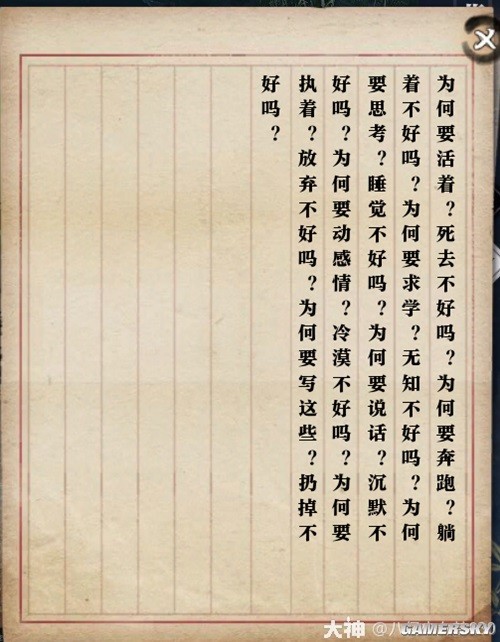 为何要活着？死去不好吗？为何要奔跑？躺
着不好吗？为何要求学？无知不好吗？为何
要思考？睡觉不好吗？为何要说话？沉默不
好吗？为何要动感情？冷漠不好吗？为何要
执着？放弃不好吗？为何要写这些？扔掉不
好吗？
大神
GAMERSKY